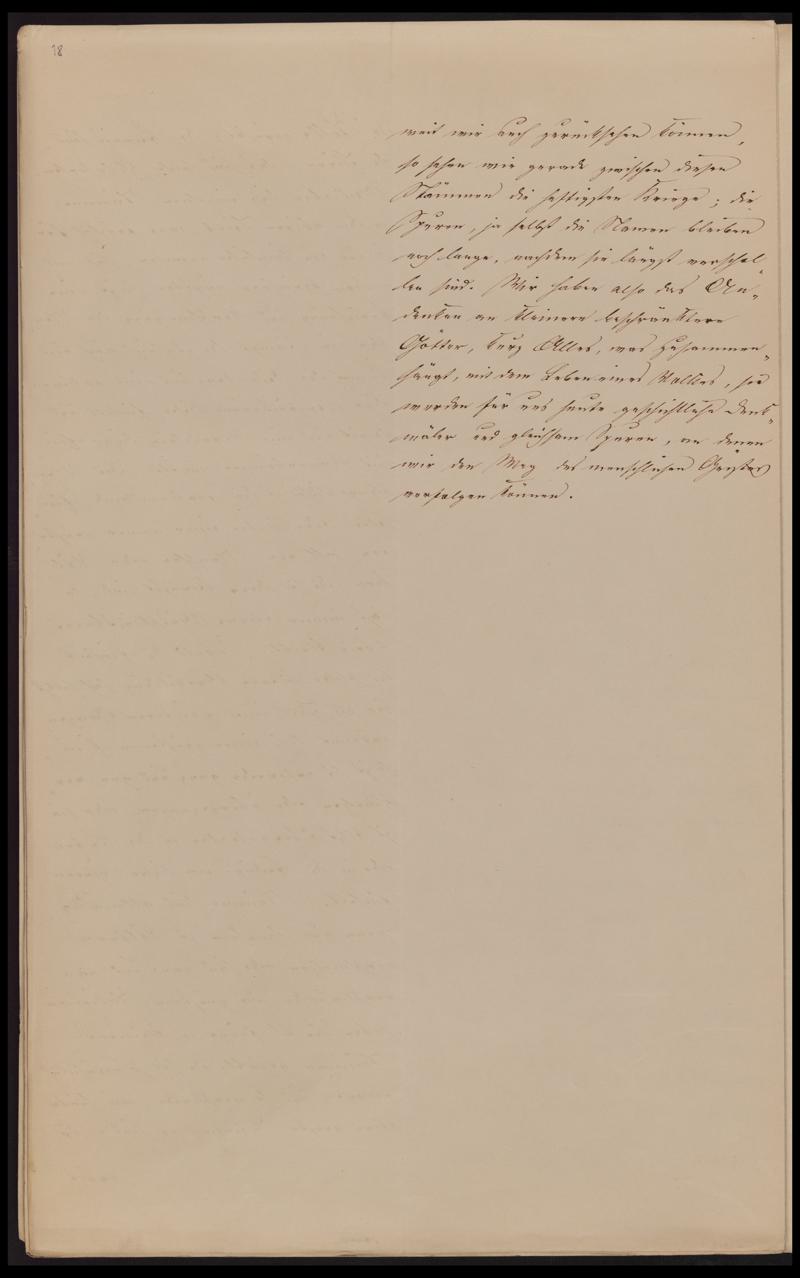 18
weit wir auch zurücksehen können,
so sehen wir gerade zwischen diesen
Stämmen die heftigsten Kriege; die
Spuren, ja selbst die Namen bleiben
noch lange, nachdem sie längst verschol„
len sind. Wir haben also das An„
denken an kleinere beschränktere
Götter, kurz Alles, was zusammen„
hängt, mit dem Leben eines Volkes, sie
werden für uns heute geschichtliche Denk„
mäler und gleichsam Spuren, an denen
wir den Weg des menschlichen Geistes
verfolgen können.